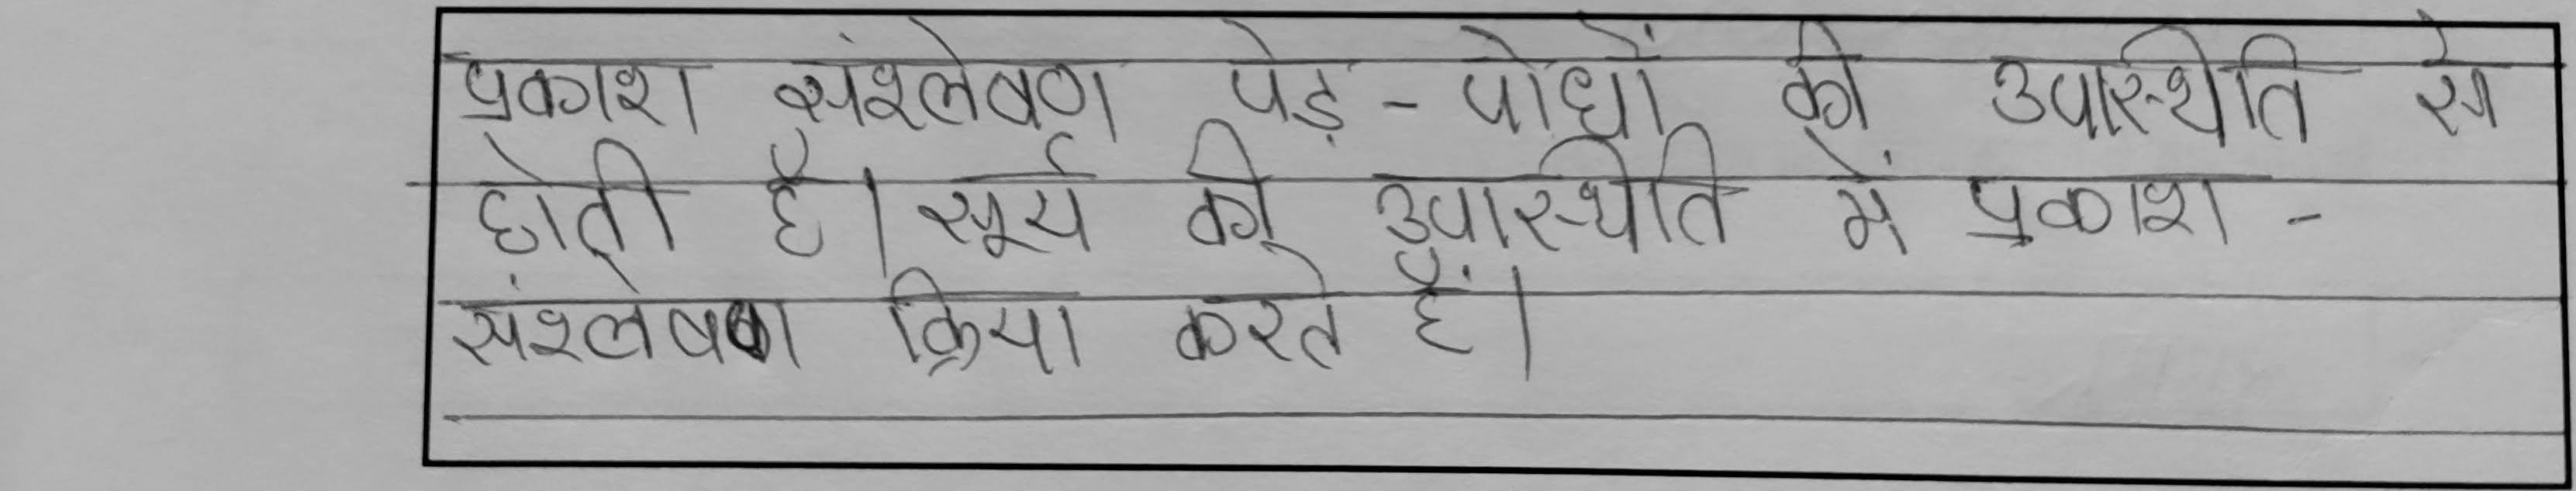 प्रकाश संश्लेषण पेड़ - पोधों की उपस्थिति से
होती है। सूर्य की उपस्थिति में प्रकाश -
संश्लेषण क्रिया करते हैं।